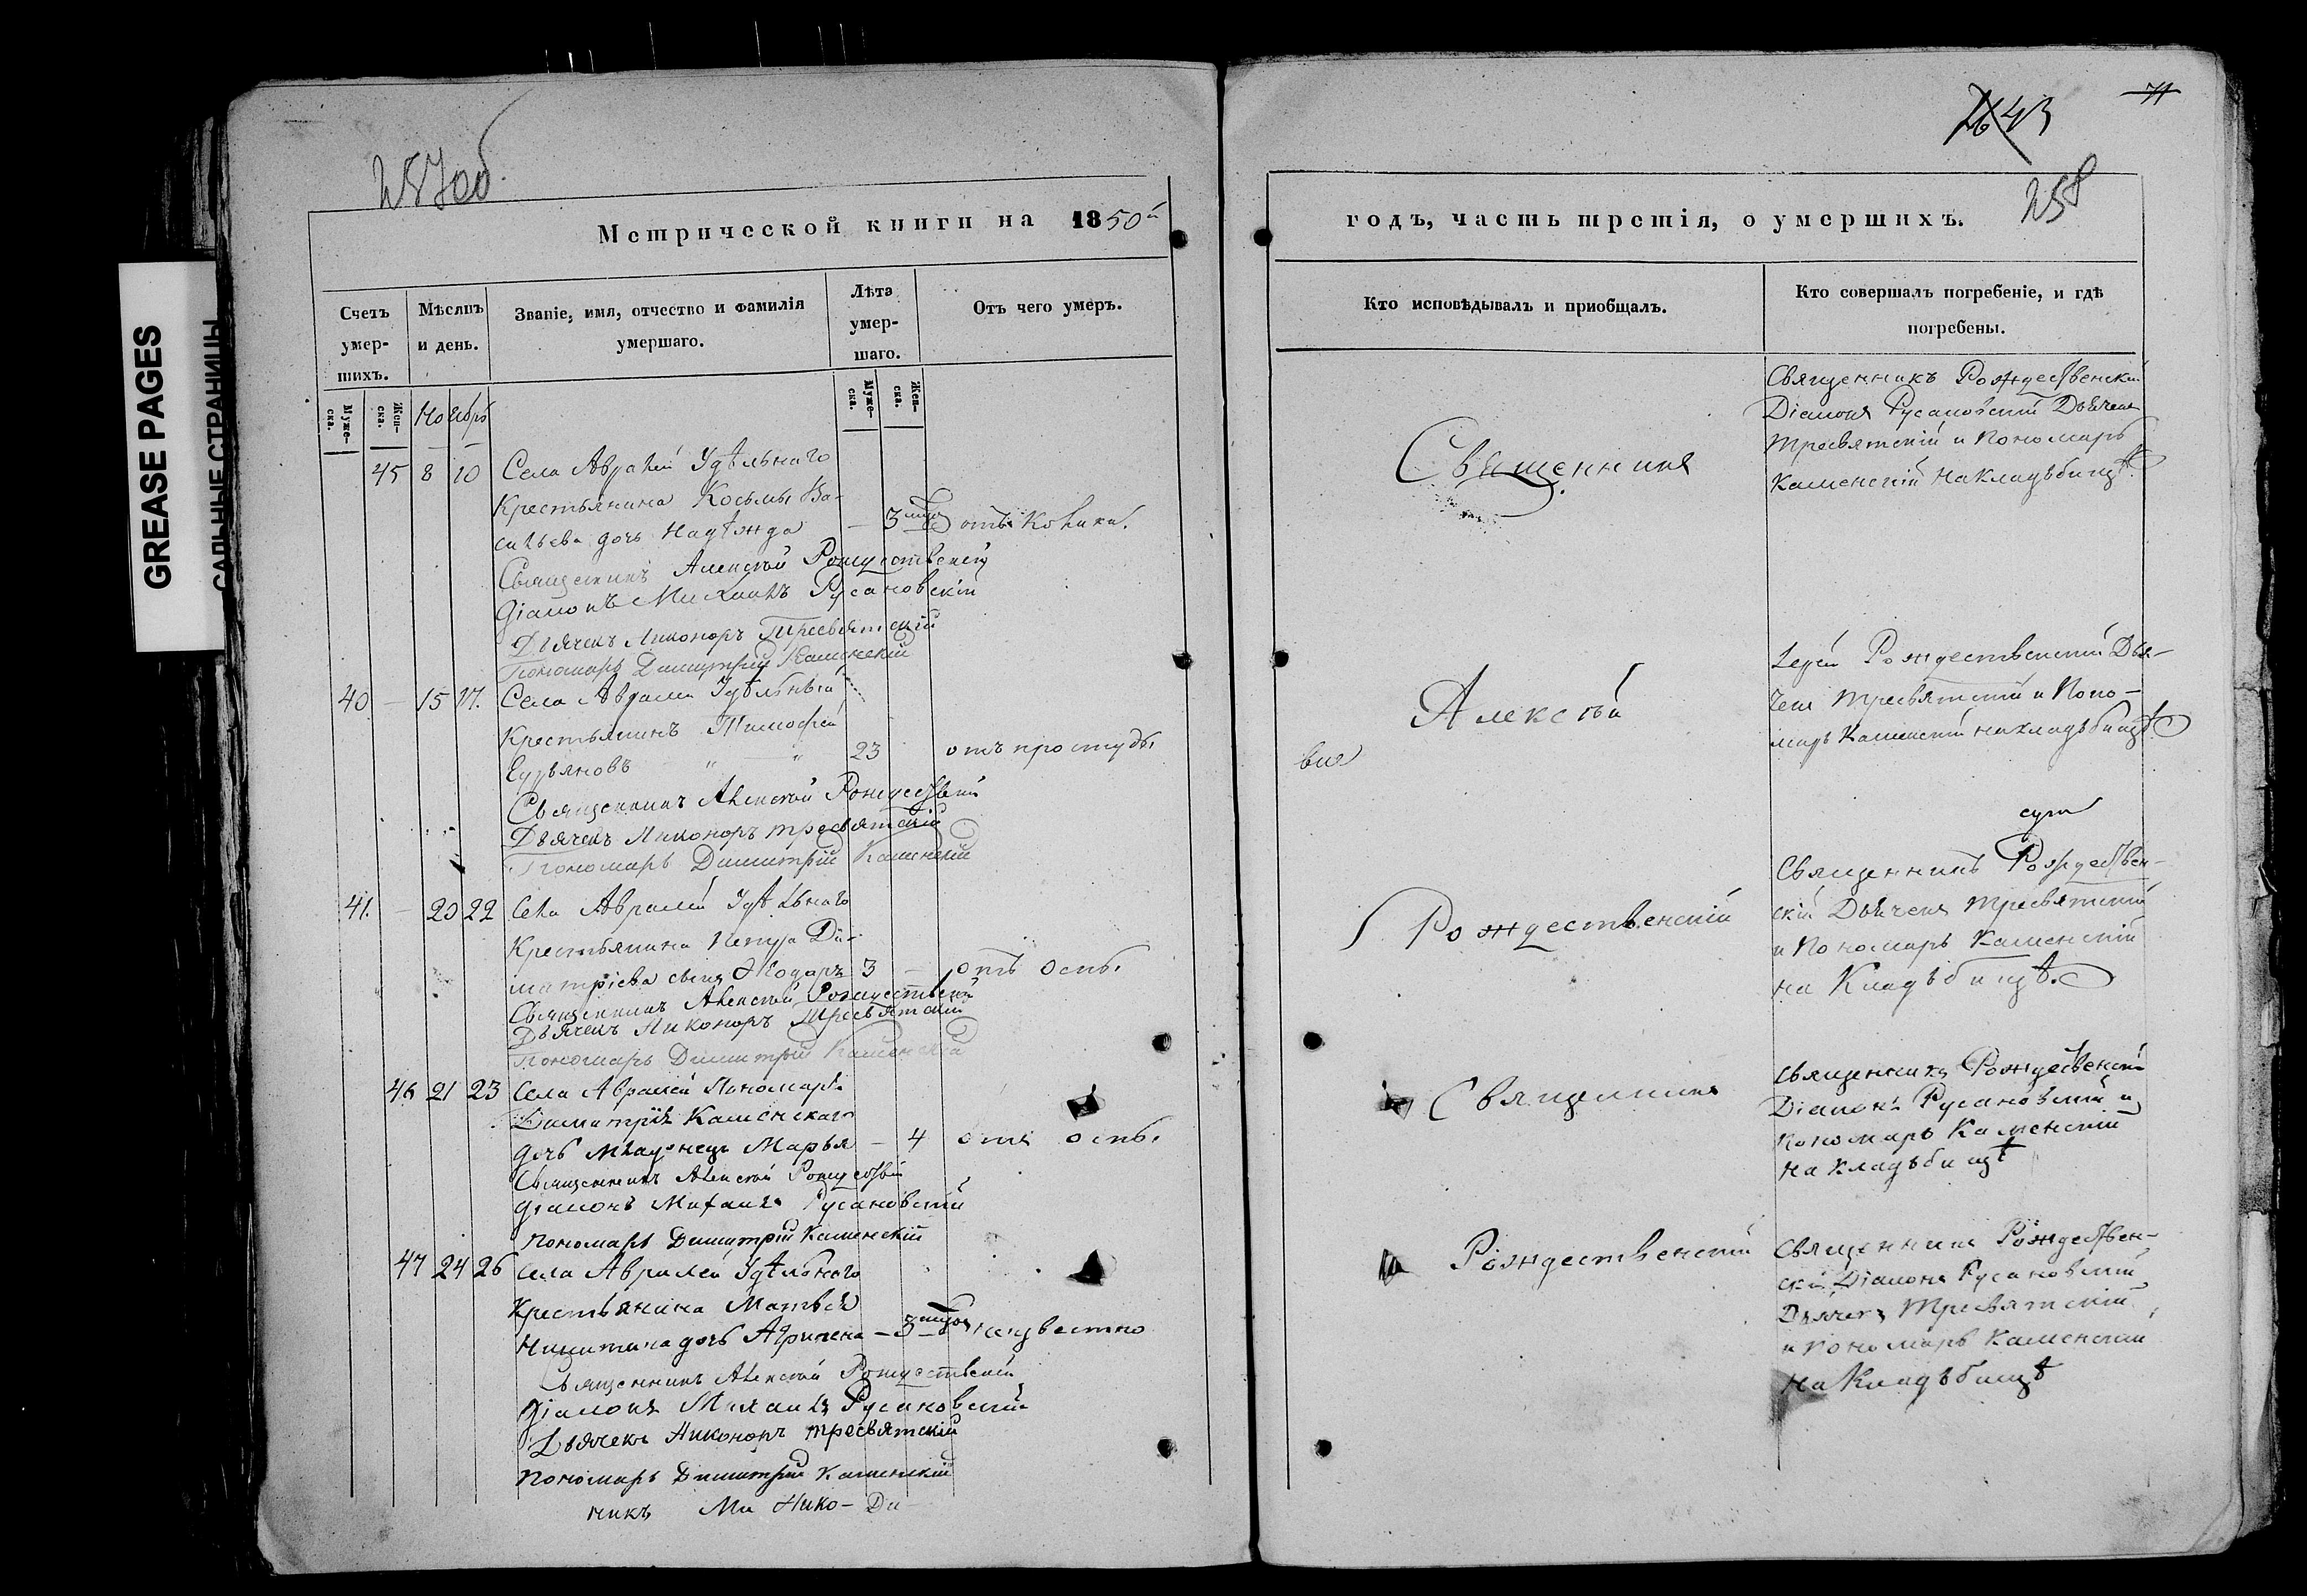 GREASE PAGES
САЛЬНЫЕ СТРАНИЦЫ
257об.
Метрической книги на 1850й
Счетъ умер-шихъ.
Мѣсяцъ и день.
Званіе, имя, отчество и фамилія умершаго.
Лѣта умер-шаго.
Отъ чего умеръ.
Муже-ска.
Жен-ска.
Ноябрь
Муже-ска.
Жен-ска.
45 8 10 Села Авралей Удѣльнаго
Крестьянина Косьмы Ва-
сильева дочь Надѣжда — 3 отъ Колики.
Священникъ Алексѣй Рождественскій
Діаконъ Михаилъ Русановскій
Дьячекъ Никоноръ Тресвятскій
Пономарь Димитрій Каменскій
40 — 15 17. Села Авралей Удѣльный
Крестьянинъ Тимофей
23 отъ простуды
Священникъ Алексѣй Рождествен
Дьячекъ Никоноръ Тресвятскій
Пономарь Димитрій Каменскій
41. — 20 22 Села Авралей Удѣльнаго
Крестьянина Петра Ди-
митріева сынъ Ѳеодоръ 3 — отъ оспы
Священникъ Алексѣй Рождественскій
Дьячекъ Никоноръ Тресвятскій
Пономарь Димитрій Каменскій
46 21 23 Села Авралей Пономаря
Димитрія Каменскаго
дочь младенецъ Марья — 4 отъ оспы
Священникъ Алексѣй
Діаконъ Михаилъ Русановскій
Пономарь Димитрій Каменскій
47 24 26 Села Авралей Удѣльнаго
Крестьянина Матвѣя
Никитина дочь Агрипена — 3 неизвестно
Священникъ Алексѣй Рождественскій
Діаконъ Михаилъ Русановскій
Дьячекъ Никоноръ Тресвятскій
Пономарь Димитрій Каменскій
никъ Ми Нико- Ди
71
258
годъ, часть третія, о умершихъ.
Кто исповѣдывалъ и приобщалъ.
Кто совершалъ погребеніе, и гдѣ погребены.
Священникъ
Алексѣй
Рождественскій
Священникъ
Рождественскій
Священникъ Рождественскій
Діаконъ Русановскій Дьячекъ
Тресвятскій и Пономарь
Каменскій на кладьбищѣ
Іерей Рождественскій Дья-
чекъ Тресвятскій и Поно-
марь Каменскій на кладьбищѣ
Священникъ Рождествен-
скій Дьячекъ Тресвятскій
и Пономарь Каменскій
на Кладьбищѣ.
Священникъ Рождественскій
Діаконъ Русановскій и
Пономарь Каменскій
на кладьбищѣ
Священникъ Рождествен-
скій Діаконъ Русановскій
Дьячекъ Тресвятскій
и Пономарь Каменскій
на Кладьбищѣ